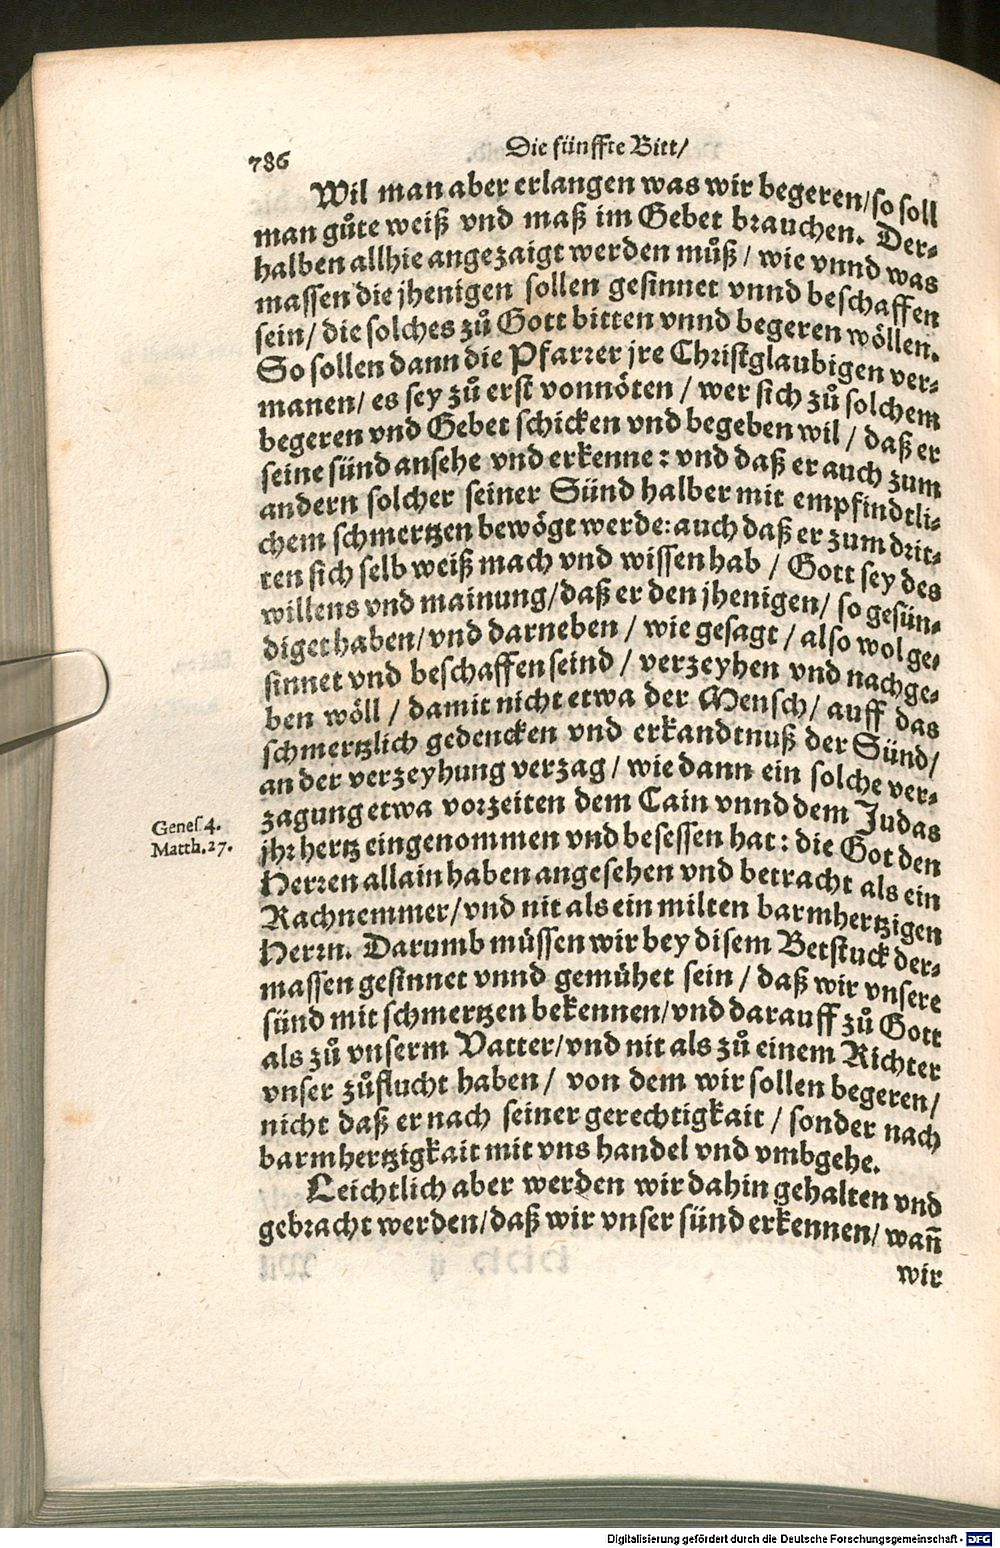 786
Die fünffte Bitt/
Wil man aber erlangen was wir begeren/ so soll
man gůte weiß vnd maß im Gebet brauchen. Der-
halben allhie angezaigt werden můß / wie vnnd was
massen die jhenigen sollen gesinnet vnnd beschaffen
sein/ die solches zů Gott bitten vnnd begeren wöllen.
So sollen dann die Pfarrer jre Christglaubigen ver-
manen/ es sey zů erst vonnöten / wer sich zů solchem
begeren vnd Gebet schicken vnd begeben wil / daß er
seine sünd ansehe vnd erkenne: vnd daß er auch zum
andern solcher seiner Sünd halber mit empfindtli-
chem schmertzen bewögt werde: auch daß er zum drit-
ten sich selb weiß mach vnd wissen hab / Gott sey des
willens vnd mainung/ daß er den jhenigen/ so gesün-
diget haben/ vnd darneben / wie gesagt / also wol ge-
sinnet vnd beschaffen seind / verzeyhen vnd nachge-
ben wöll / damit nicht etwa der Mensch/ auff das
schmertzlich gedencken vnd erkandtnuß der Sünd/
an der verzeyhung verzag / wie dann ein solche ver-
zagung etwa vorzeiten dem Cain vnnd dem Judas
Genes. 4.
Matth. 27.
jhr hertz eingenommen vnd besessen hat: die Got den
Herren allain haben angesehen vnd betracht als ein
Rachnemmer/ vnd nit als ein milten barmhertzigen
Herrn. Darumb müssen wir bey disem Betstuck der-
massen gesinnet vnnd gemühet sein / daß wir vnsere
sünd mit schmertzen bekennen/ vnd darauff zů Gott
als zů vnserm Vatter/ vnd nit als zů einem Richter
vnser zůflucht haben / von dem wir sollen begeren/
nicht daß er nach seiner gerechtigkait / sonder nach
barmhertzigkait mit vns handel vnd vmbgehe.
Leichtlich aber werden wir dahin gehalten vnd
gebracht werden/ daß wir vnser sünd erkennen/ wañ
wir
Digitalisierung gefördert durch die Deutsche Forschungsgemeinschaft - DFG